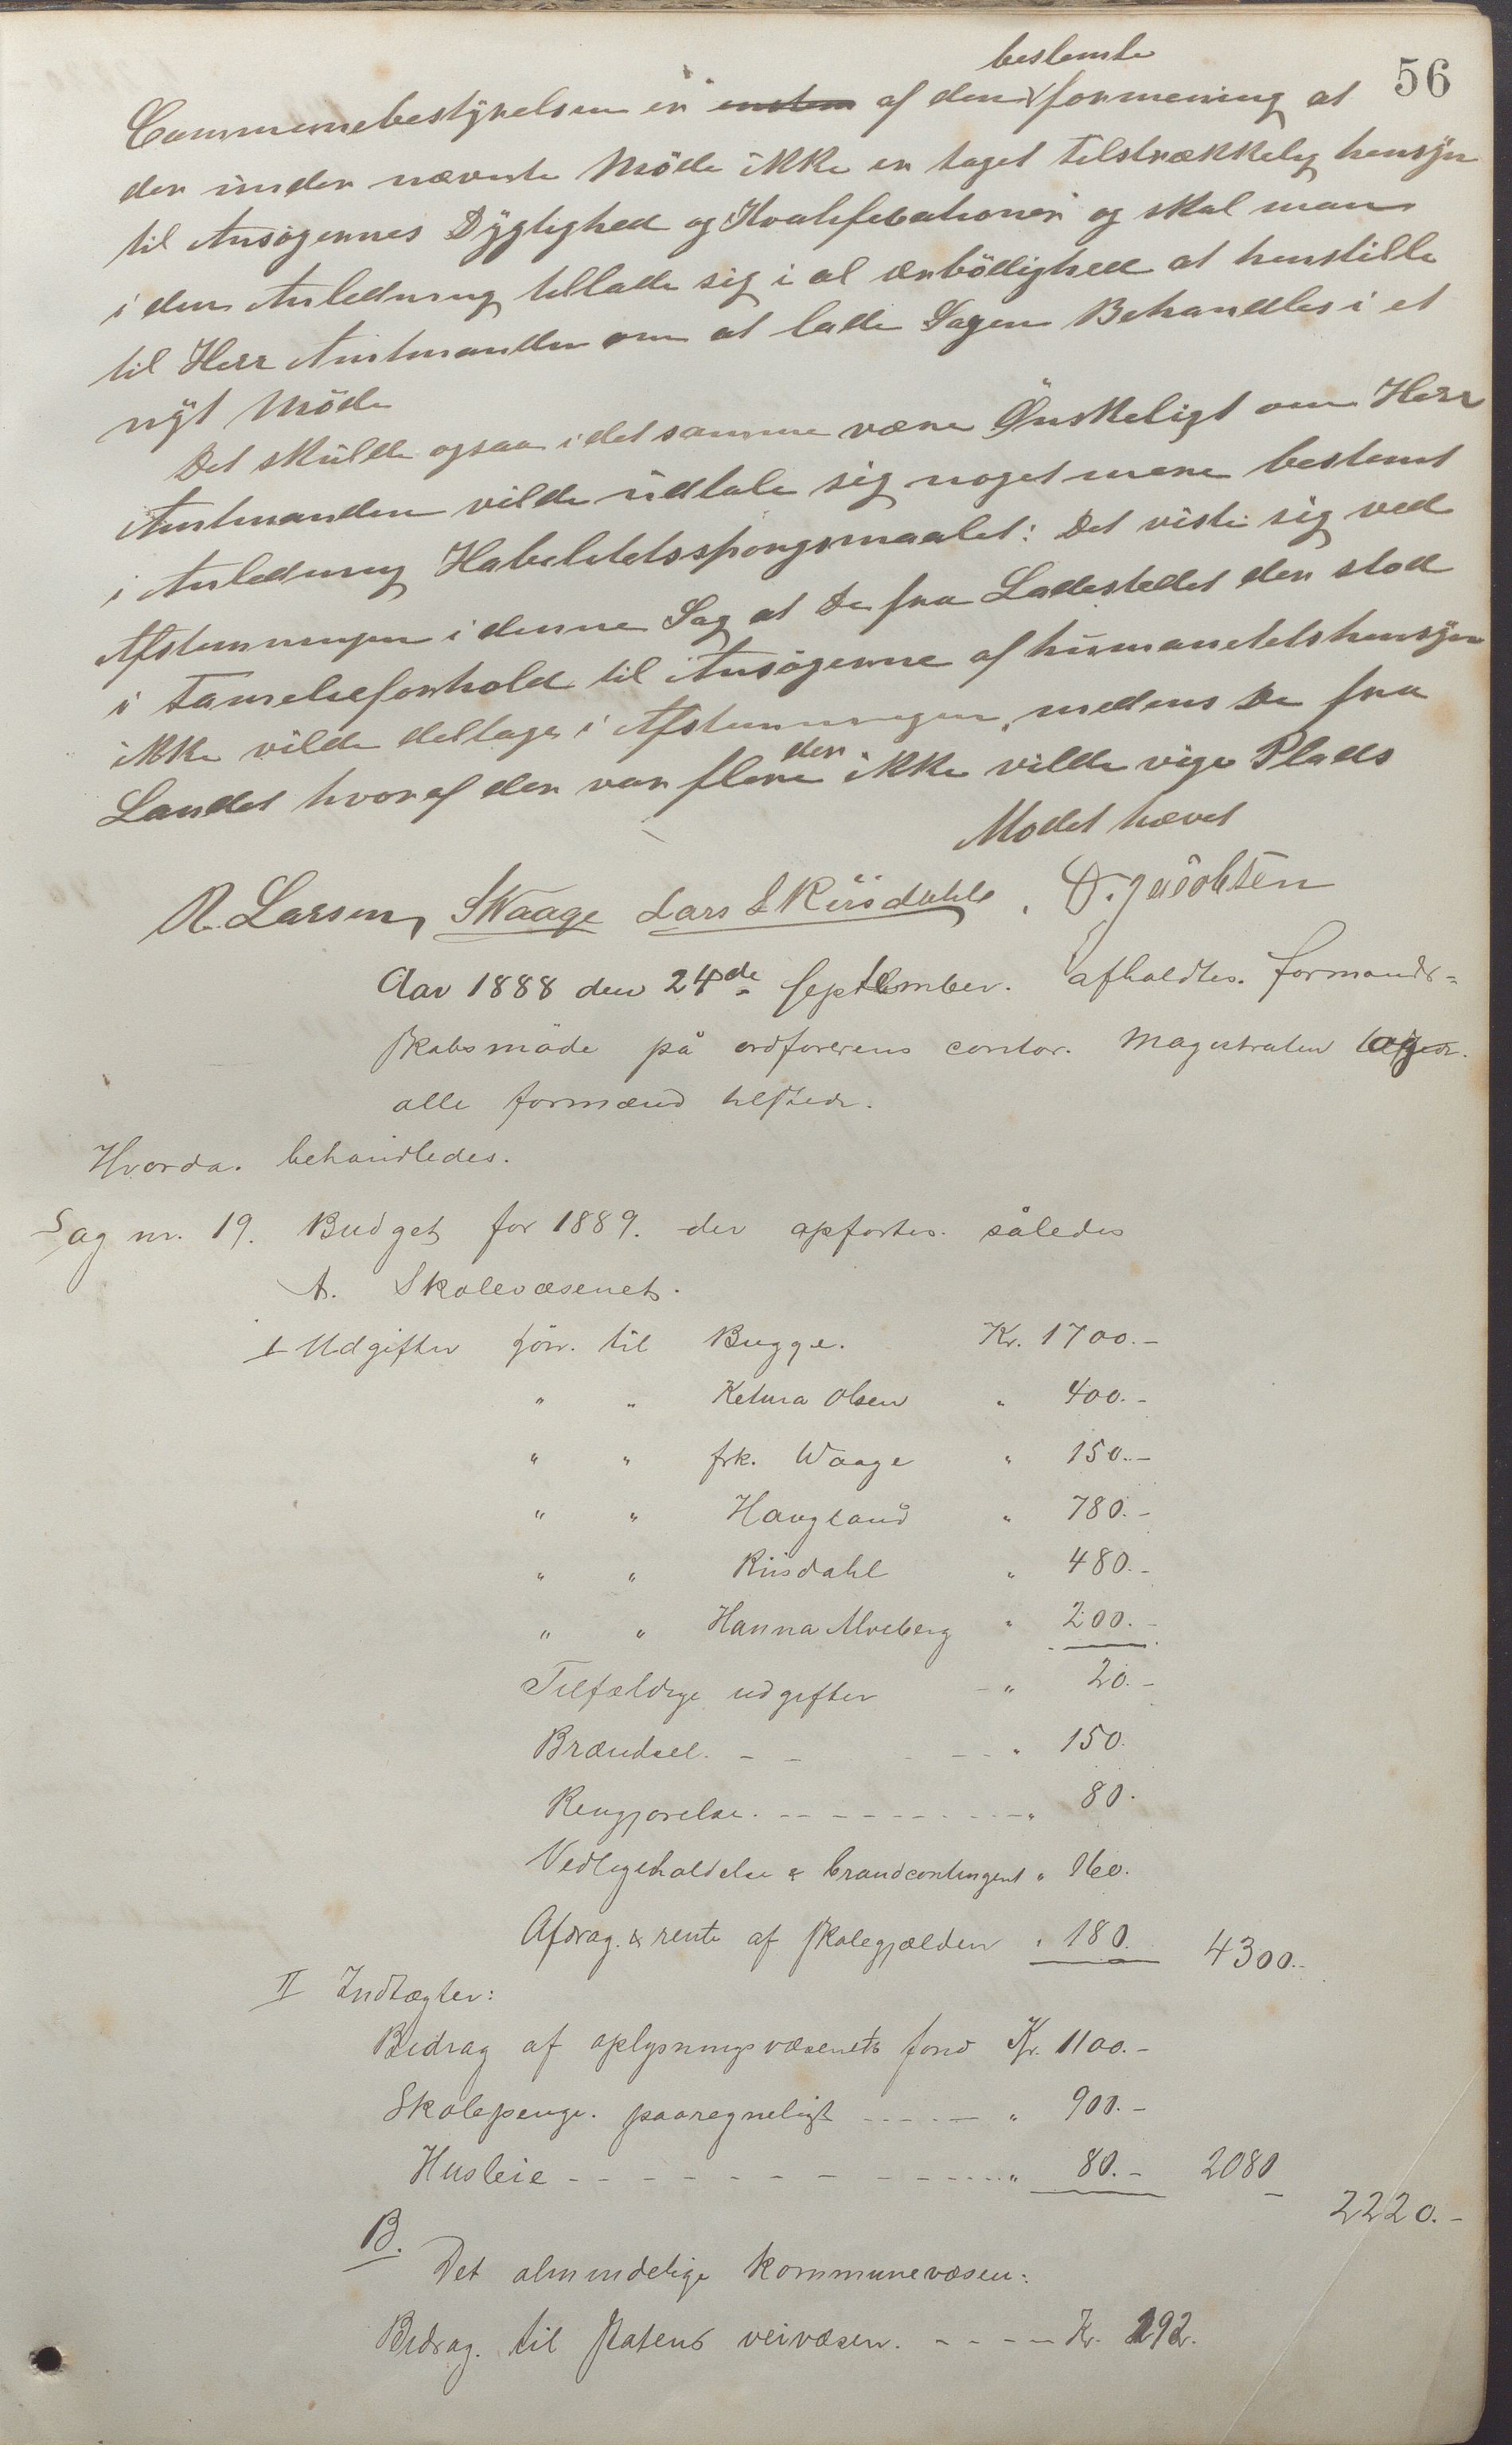 56
bestemte
Communebestyrelsen er enstem af den formening at
der under nævnte Möde ikke er taget tilstrækkelig hensyn
til Ansögernes Dygtighed og Kvalifikationer og skal man
i den Anledning tillade sig i al ærbödighed at henstille
til Herr Amtmanden om at lade Sagen Behandles i et
nyt Möde
Det skulde ogsaa i det samme være Önskeligt om Herr
Amtmanden vilde udtale sig noget mere bestemt
i Anledning Habilitetsspörgsmaalet: Det viste sig ved
Afstemningen i denne Sag at De fra Ladestedet der stod
i Familieforhold til Ansögerne af humanitetshensyn
ikke vilde deltage i Afstemningen, medens De fra
Landet hvoraf der var flere der ikke vilde vige Plads
Mödet hævet
R. Larsen, SWaage Lars L Riisdahl D. Jacobsen
Aar 1888 den 24de September. afholdtes. formands-
skabsmöde på ordforerens contor. Magistraten og
alle formænd tilstede.
Hvorda. behandledes.
Sag nr. 19. Budget for 1889. der opfortes. således
A. Skolevæsenet.
I Udgifter Lön. til Bugge. Kr. 1700.-
" " Ketura Olsen " 400.-
" " frk. Waage " 150.-
" " Haugland " 780.-
" " Riisdahl " 480.-
" " Hanna Alveberg " 200.-
Tilfældige udgifter - " 20.-
Brændsel. - - - - " 150.
Rengjorelse. - - - - - - - - - " 80.
Vedligeholdelse & brandcontingent " 160.
Afdrag. & rente af skolegjælden " 180. 4300.-
II Indtægter:
Bidrag af oplysningsvæsenets fond Kr. 1100.-
Skolepenge. paaregneligt - - - - - " 900.-
Husleie - - - - - - - - - - - - " 80.- 2080
2220.-
B.
Det almindelige kommunevæsen:
Bidrag. til statens veivæsen. - - - - Kr. 292.